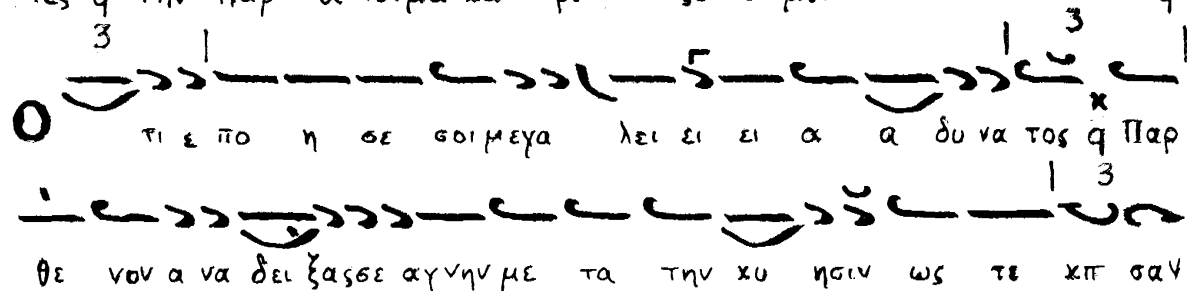 τες q την Παρ
3 3
Ο τι ε πο η σε σοι μεγα λει ει ει α α δυ να τος q Παρ
3
θε νον α να δει ξας σε αγνην με τα την κυ ησιν ως τε κπ σαν